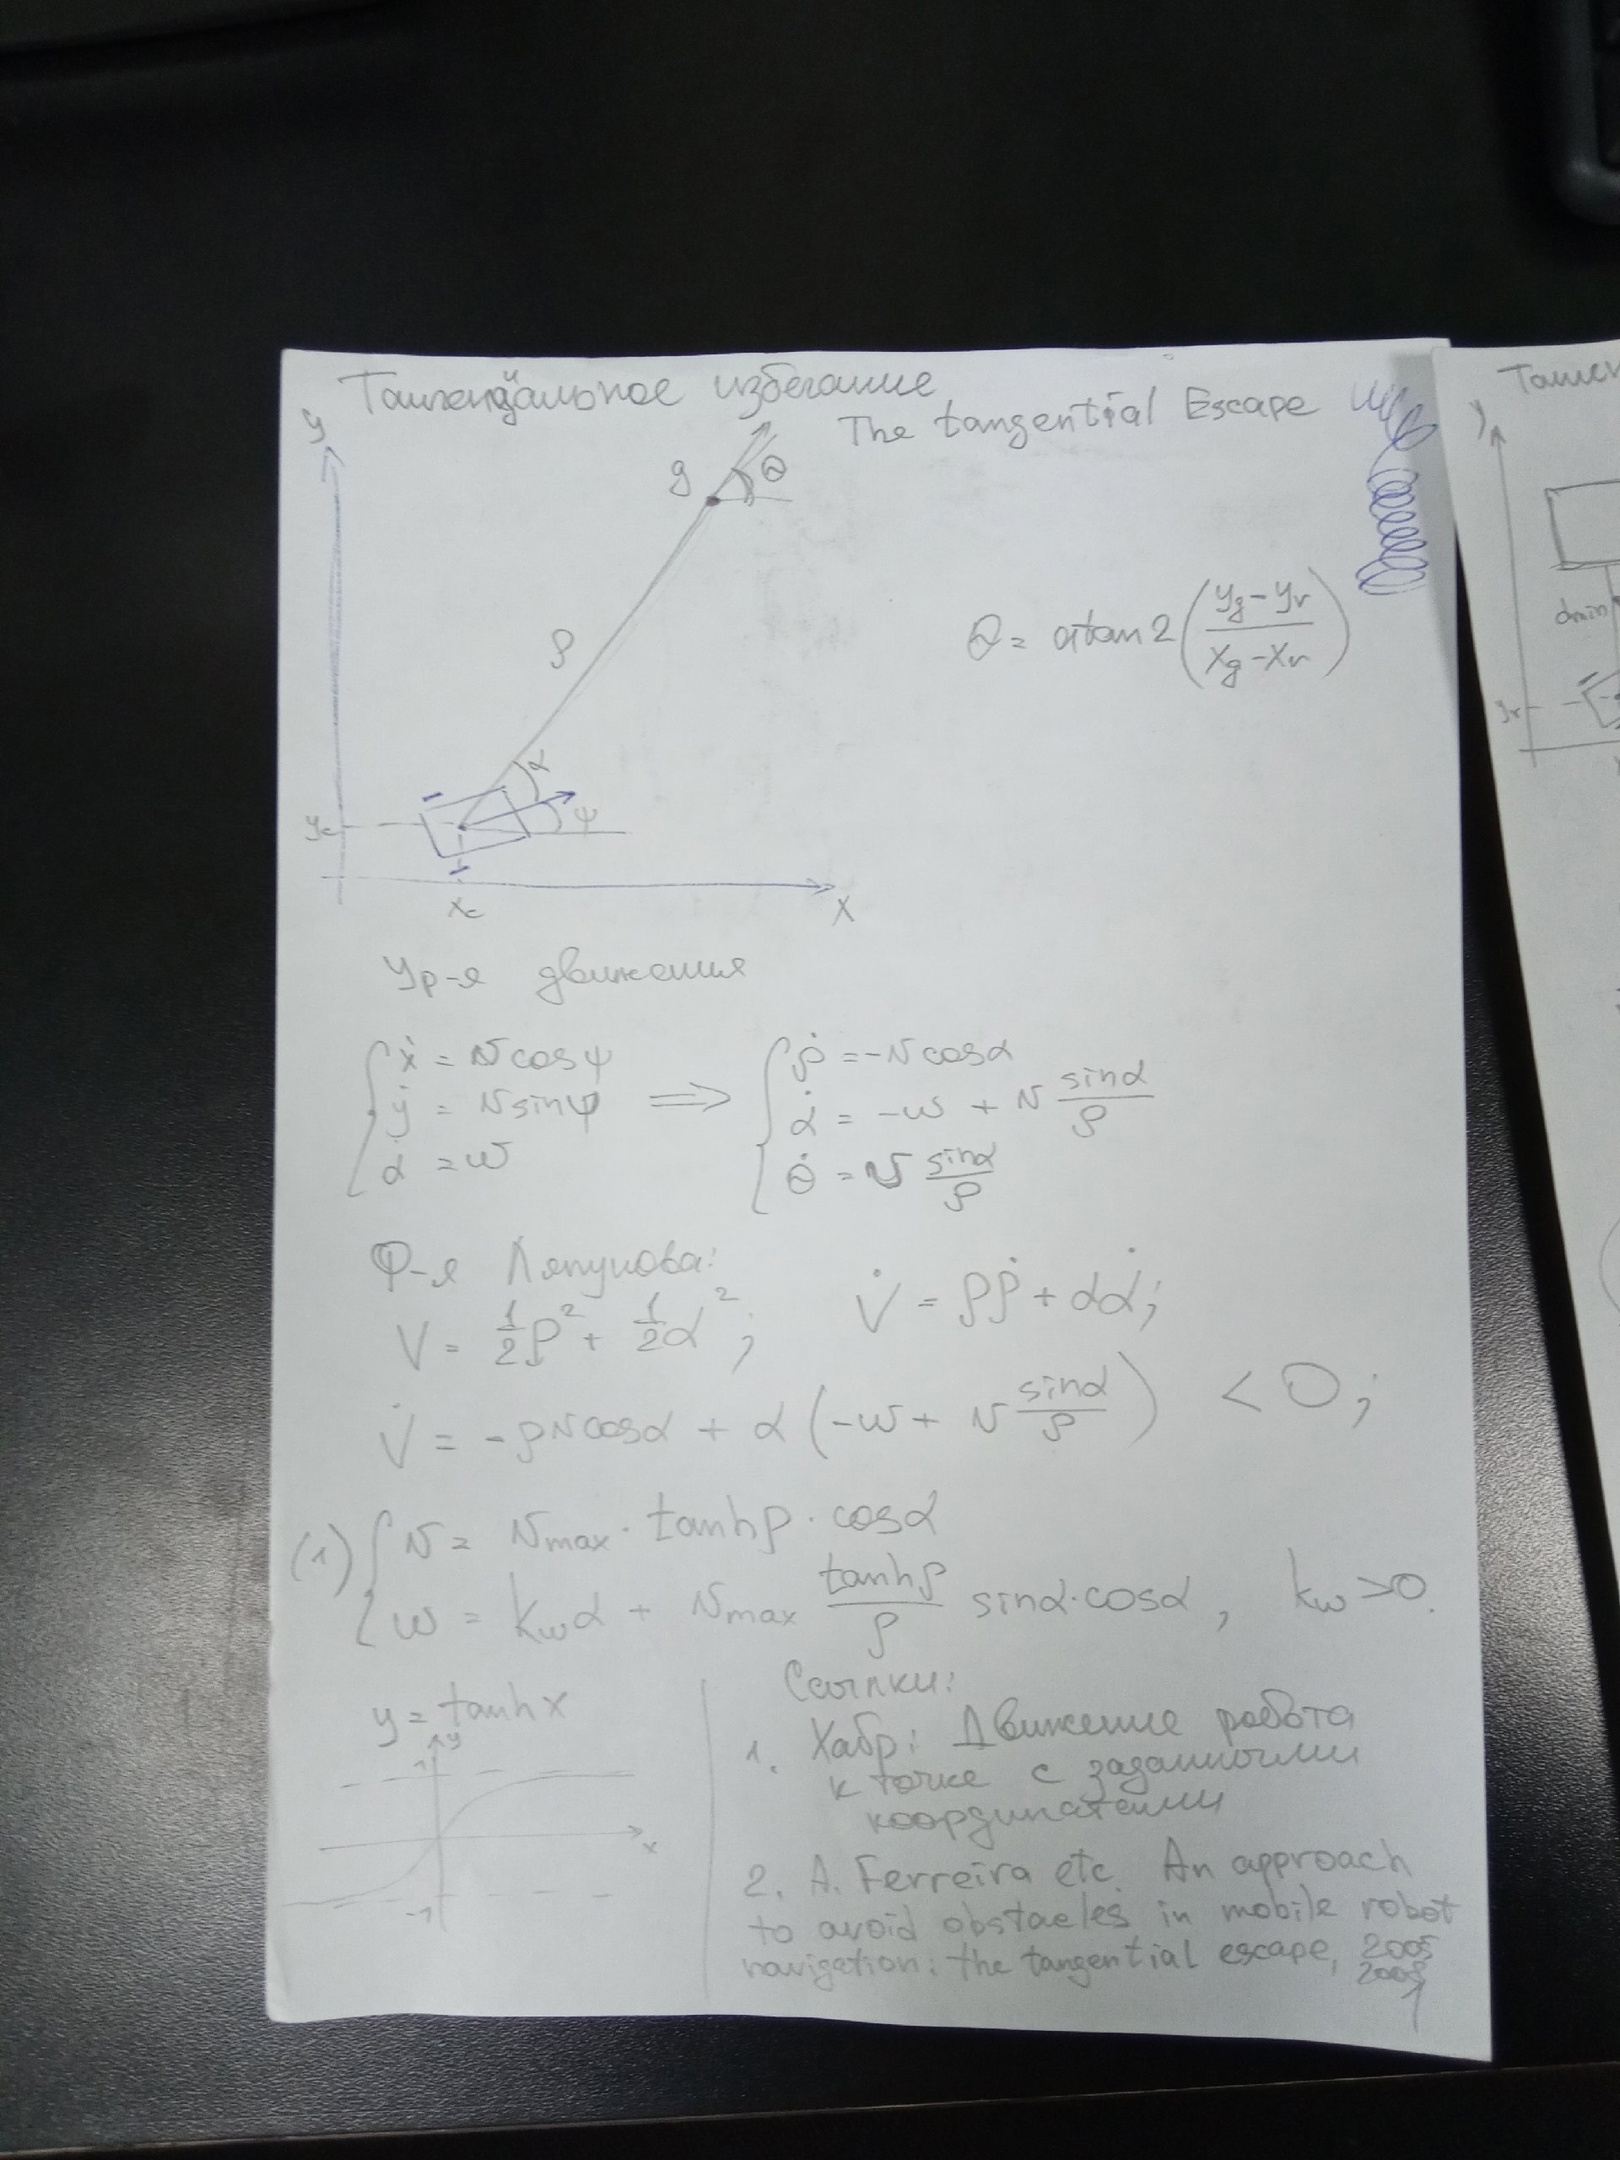 Тангенциальное избегание
The tangential Escape
y
g θ
θ = atan2 (yg - yr / xg - xr)
ρ
α
ψ
yc
xc
X
Ур-я движения
{ ẋ = v cos ψ ⟹ { ρ̇ = -v cos α
ẏ = v sin ψ α̇ = -w + v sin α / ρ
α̇ = w θ̇ = v sin α / ρ
Ф-я Ляпунова:
V = 1/2 ρ² + 1/2 α²; V̇ = ρρ̇ + αα̇;
V̇ = -ρ v cos α + α (-w + v sin α / ρ) < 0;
(1) { v = vmax · tanh ρ · cos α
w = kw α + vmax tanh ρ / ρ sin α · cos α, kw > 0.
y = tanh x
y
1
x
-1
Ссылки:
1. Хабр: Движение робота
к точке с заданными
координатами
2. A. Ferreira etc. An approach
to avoid obstacles in mobile robot
navigation: the tangential escape,
Y
dmin
yr